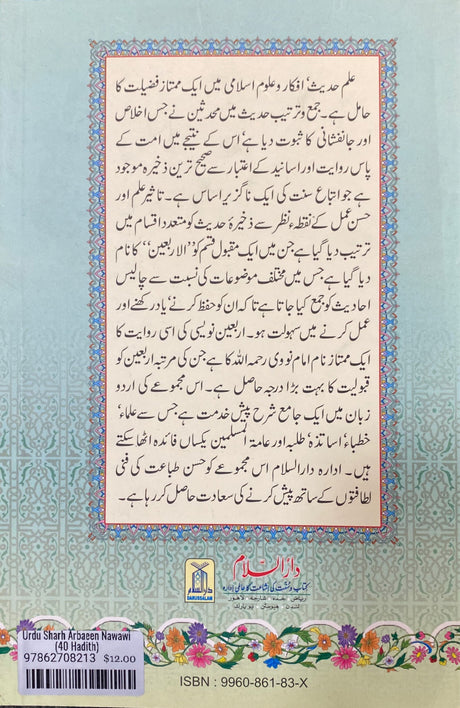 علم حدیث، افکار و علوم اسلامی میں ایک ممتاز فضیلت کا
حامل ہے۔ جمع و ترتیب حدیث میں محدثین نے جس اخلاص
اور جانفشانی کا ثبوت دیا ہے، اس کے نتیجے میں امت کے
پاس روایت اور اسانید کے اعتبار سے صحیح ترین ذخیرہ موجود
ہے جو اتباع سنت کی ایک ناگزیر اساس ہے۔ تاثیر علم اور
حسن عمل کے نقطۂ نظر سے ذخیرۂ حدیث کو متعدد اقسام میں
ترتیب دیا گیا ہے جن میں ایک مقبول قسم کو ’’الاربعین‘‘ کا نام
دیا گیا ہے جس میں مختلف موضوعات کی نسبت سے چالیس
احادیث کو جمع کیا جاتا ہے تاکہ ان کو حفظ کرنے، یاد رکھنے اور
عمل کرنے میں سہولت ہو۔ اربعین نویسی کی اسی روایت کا
ایک ممتاز نام امام نووی رحمہ اللہ کا ہے جن کی مرتبہ اربعین کو
قبولیت کا بہت بڑا درجہ حاصل ہے۔ اس مجموعے کی اردو
زبان میں ایک جامع شرح پیش خدمت ہے جس سے علماء،
خطباء، اساتذہ، طلبہ اور عامۃ المسلمین یکساں فائدہ اٹھا سکتے
ہیں۔ ادارہ دارالسلام اس مجموعے کو حسن طباعت کی فنی
لطافتوں کے ساتھ پیش کرنے کی سعادت حاصل کر رہا ہے۔
دارالسلام
کتاب و سنت کی اشاعت کا عالمی ادارہ
ریاض جدہ شارجہ لاہور
لندن ہیوسٹن نیویارک
دارالسلام
DARUSSALAM
Urdu Sharh Arbaeen Nawawi
(40 Hadith)
97862708213 $12.00
ISBN : 9960-861-83-X